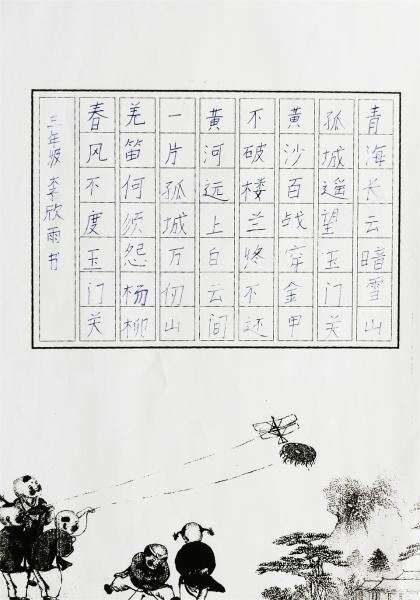 青海长云暗雪山
孤城遥望玉门关
黄沙百战穿金甲
不破楼兰终不还
黄河远上白云间
一片孤城万仞山
羌笛何须怨杨柳
春风不度玉门关
三年级 李欣雨书